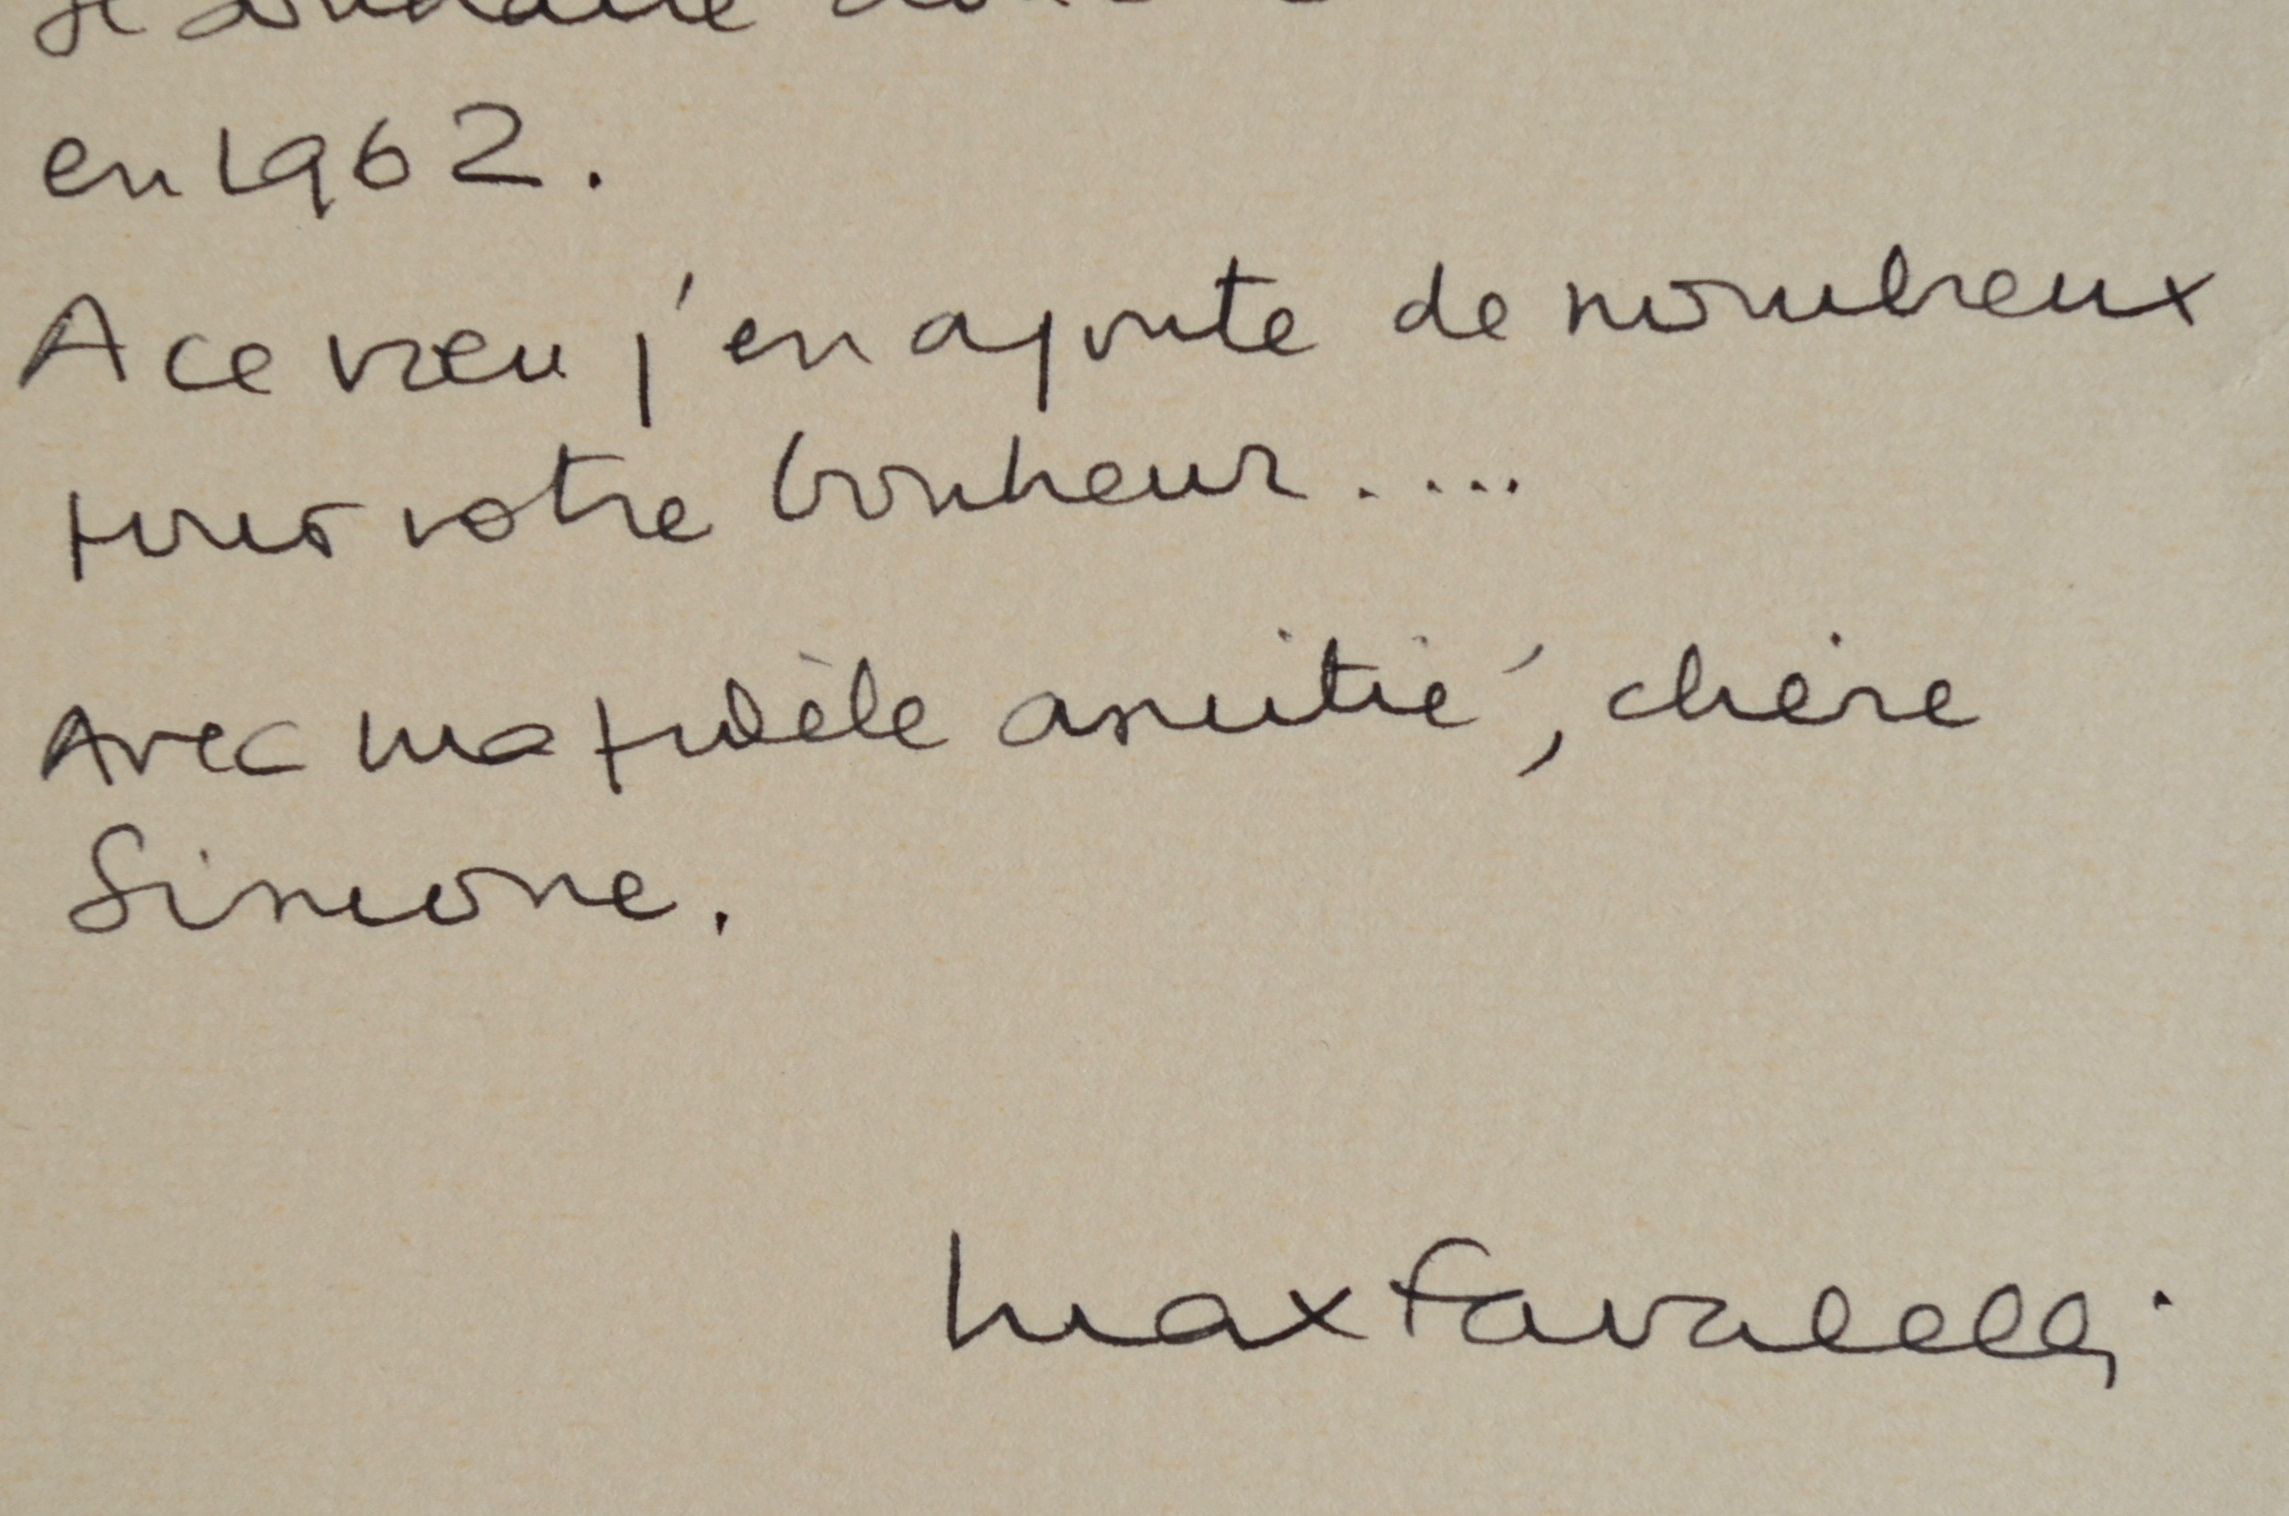 en 1962.
A ce vœu j'en ajoute de nombreux
pour votre bonheur.....
Avec ma fidèle amitié, chère
Simone.
Max Favalelli